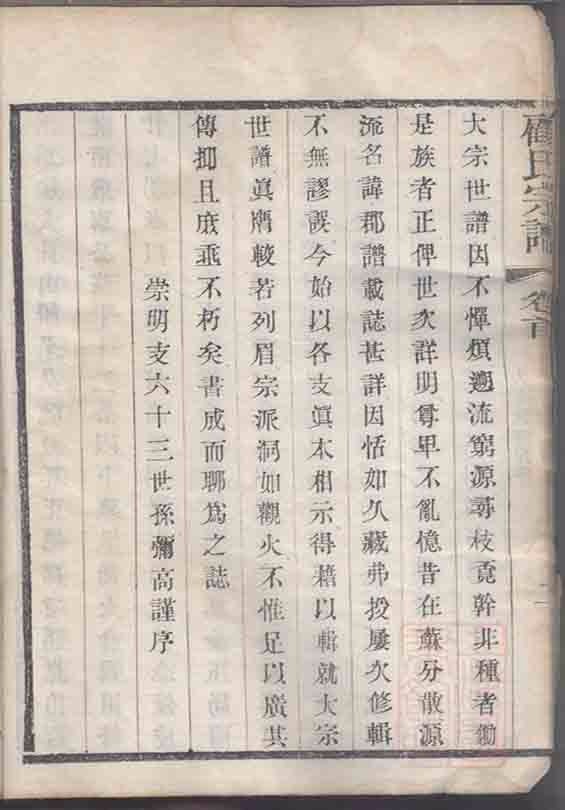 顧氏宗譜 卷首 二
大宗世譜因不憚煩遡流窮源尋枝竟幹非種者鋤
是族者正俾世次詳明尊卑不亂憶昔在蘇分散源
流名諱郡譜載誌甚詳因恬如久藏弗授屢次修輯
不無謬誤今始以各支眞本相示得藉以輯就大宗
世譜眞贋較若列眉宗派洞如觀火不惟足以廣其
傳抑且庶乖不朽矣書成而聊爲之誌
崇明支六十三世孫彌高謹序